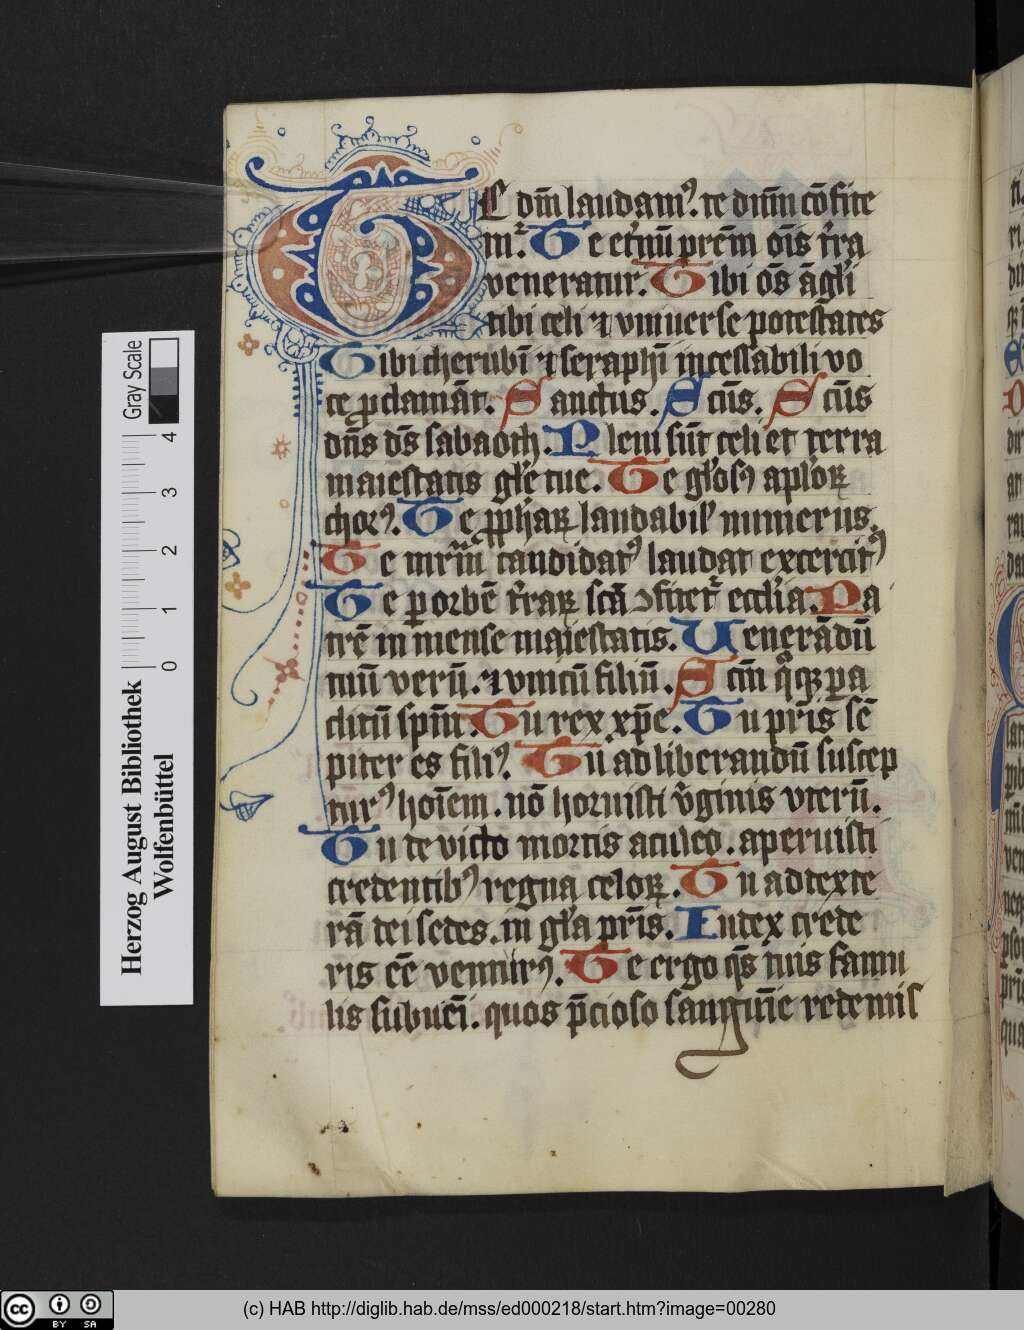 TE dm̄ laudamꝰ. te dn̄m cōfite
mᷣ. Te et̾nū prēm om̄s t̾ra
veneratur. Tibi om̄s āgl̾i
tibi celi ⁊ vniuerse potestates
Tibi cherubī ⁊ seraphī incessabili vo
ce ꝓclamāt. Sanctus. Sc̄us. Sc̄us
dn̄s ds̄ sabaoth. Pleni sūt celi et terra
maiestatis gl̾e tue. Te gl̾osꝰ apl̾oꝝ
chorꝰ. Te ꝓphaꝝ laudabil' numerus.
Te mr̄m candidatꝰ laudat excercitꝰ
Te ꝑ orbē t̾raꝝ scā ↄfitetᷣ eccl̾ia. Pa
trē inmense maiestatis. Venerādū
tuū verū. ⁊ vnicū filiū. Sc̄m qͦqꝫ pa
clitū spm̄. Tu rex xp̄e. Tu pr̄is sē
piter es filiꝰ. Tu ad liberandū suscep
turꝰ hoīem. nō horuisti v̾ginis vterū.
Tu te victo mortis aculeo. aperuisti
credentibꝰ regna celoꝝ. Tu ad dexte
rā dei sedes. in gl̾a pr̄is. Iudex crede
ris eē venturꝰ. Te ergo qs̄ tuis famu
lis subuēi. quos p̄cioso sanguīe redemis
Herzog August Bibliothek
Wolfenbüttel
Gray Scale
0 1 2 3 4
cc BY SA
(c) HAB http://diglib.hab.de/mss/ed000218/start.htm?image=00280